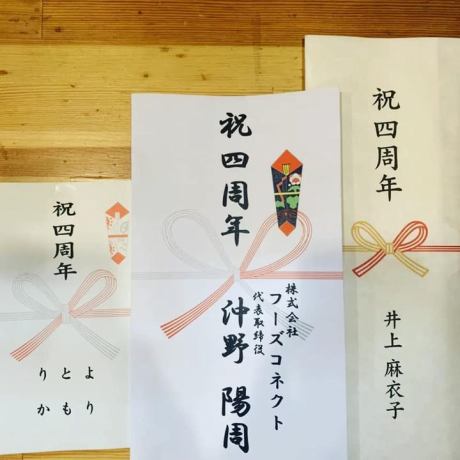 祝四周年
井上 麻衣子
祝四周年
株式会社
フーズコネクト
代表取締役
沖野 陽周
祝四周年
より
とも
りか